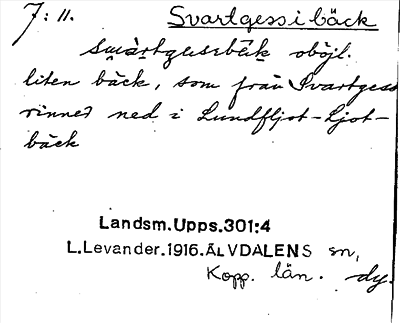 7:11. Svartgessibäck
oböjl.
liten bäck, som från Svartgess
rinner ned i Lundfljot-ljot-
bäck
Landsm.Upps.301:4
L.Levander.1916.ÄLVDALENS sn,
Kopp. län. dy.